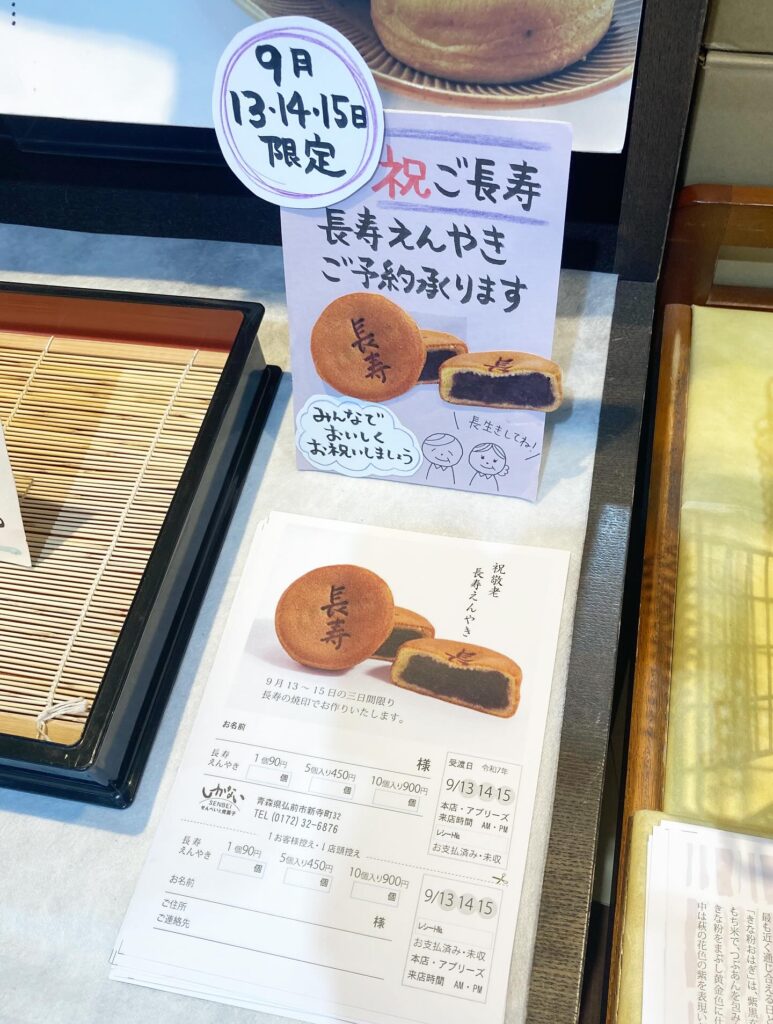 9月
13・14・15日
限定
祝ご長寿
長寿えんやき
ご予約承ります
長寿
長
みんなで
おいしく
お祝いしましょう
長生きしてね!
祝敬老
長寿えんやき
長寿
長
9月13〜15日の三日間限り
長寿の焼印でお作りいたします。
お名前
様
長寿
えんやき
1個90円
個
5個入り450円
個
10個入り900円
個
受渡日 令和7年
9/13 14 15
本店・アプリーズ
来店時間 AM・PM
レシートNo.
お支払済み・未収
しかない
SENBEI
せんべいと豊菓子
青森県弘前市新寺町32
TEL (0172) 32-6876
↑お客様控え・↓店頭控え
長寿
えんやき
1個90円
個
5個入り450円
個
10個入り900円
個
お名前
様
ご住所
ご連絡先
9/13 14 15
レシートNo.
お支払済み・未収
本店・アプリーズ
来店時間 AM・PM
最も近く通じ合える日と
「きな粉おはぎ」は、紫黒
もち米で、つぶあんを包み
きな粉をまぶし黄金色に仕
中は萩の花色の紫を表現い